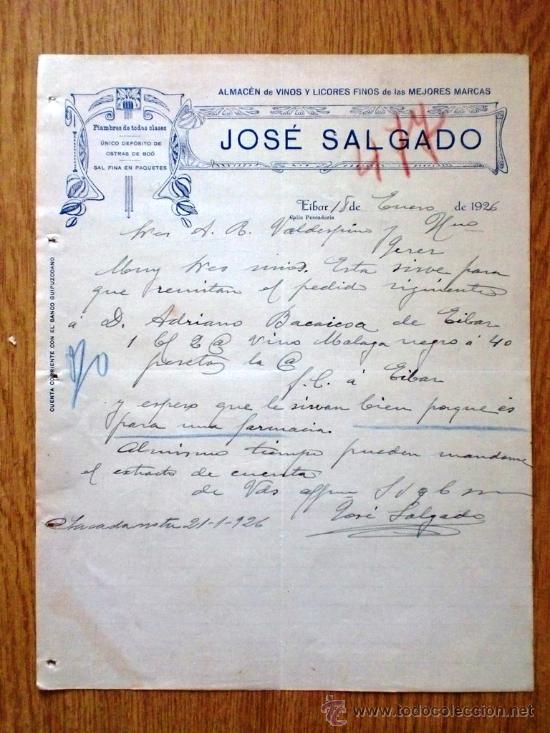 ALMACÉN de VINOS Y LICORES FINOS de las MEJORES MARCAS
Fiambres de todas clases
ÚNICO DEPÓSITO DE
OSTRAS DE BOÓ
SAL FINA EN PAQUETES
JOSÉ SALGADO
477
Eibar 18 de Enero de 1926
Calle Pescadería
Sres A. R. Valdespino y Hno
Jerez
Muy Sres mios. Esta sirve para
que remitan el pedido siguiente
á D. Adriano Bacaicoa de Eibar
1 Bl 2 @ Vino Malaga negro á 40
pesetas la @
f.C. á Eibar
y espero que le sirvan bien porque es
para una farmacia.
Al mismo tiempo pueden mandarme
el extracto de cuenta
de Vds affmo S S q b s m
José Salgado
21-1-926
CUENTA CORRIENTE CON EL BANCO GUIPUZCOANO
www.todocoleccion.net